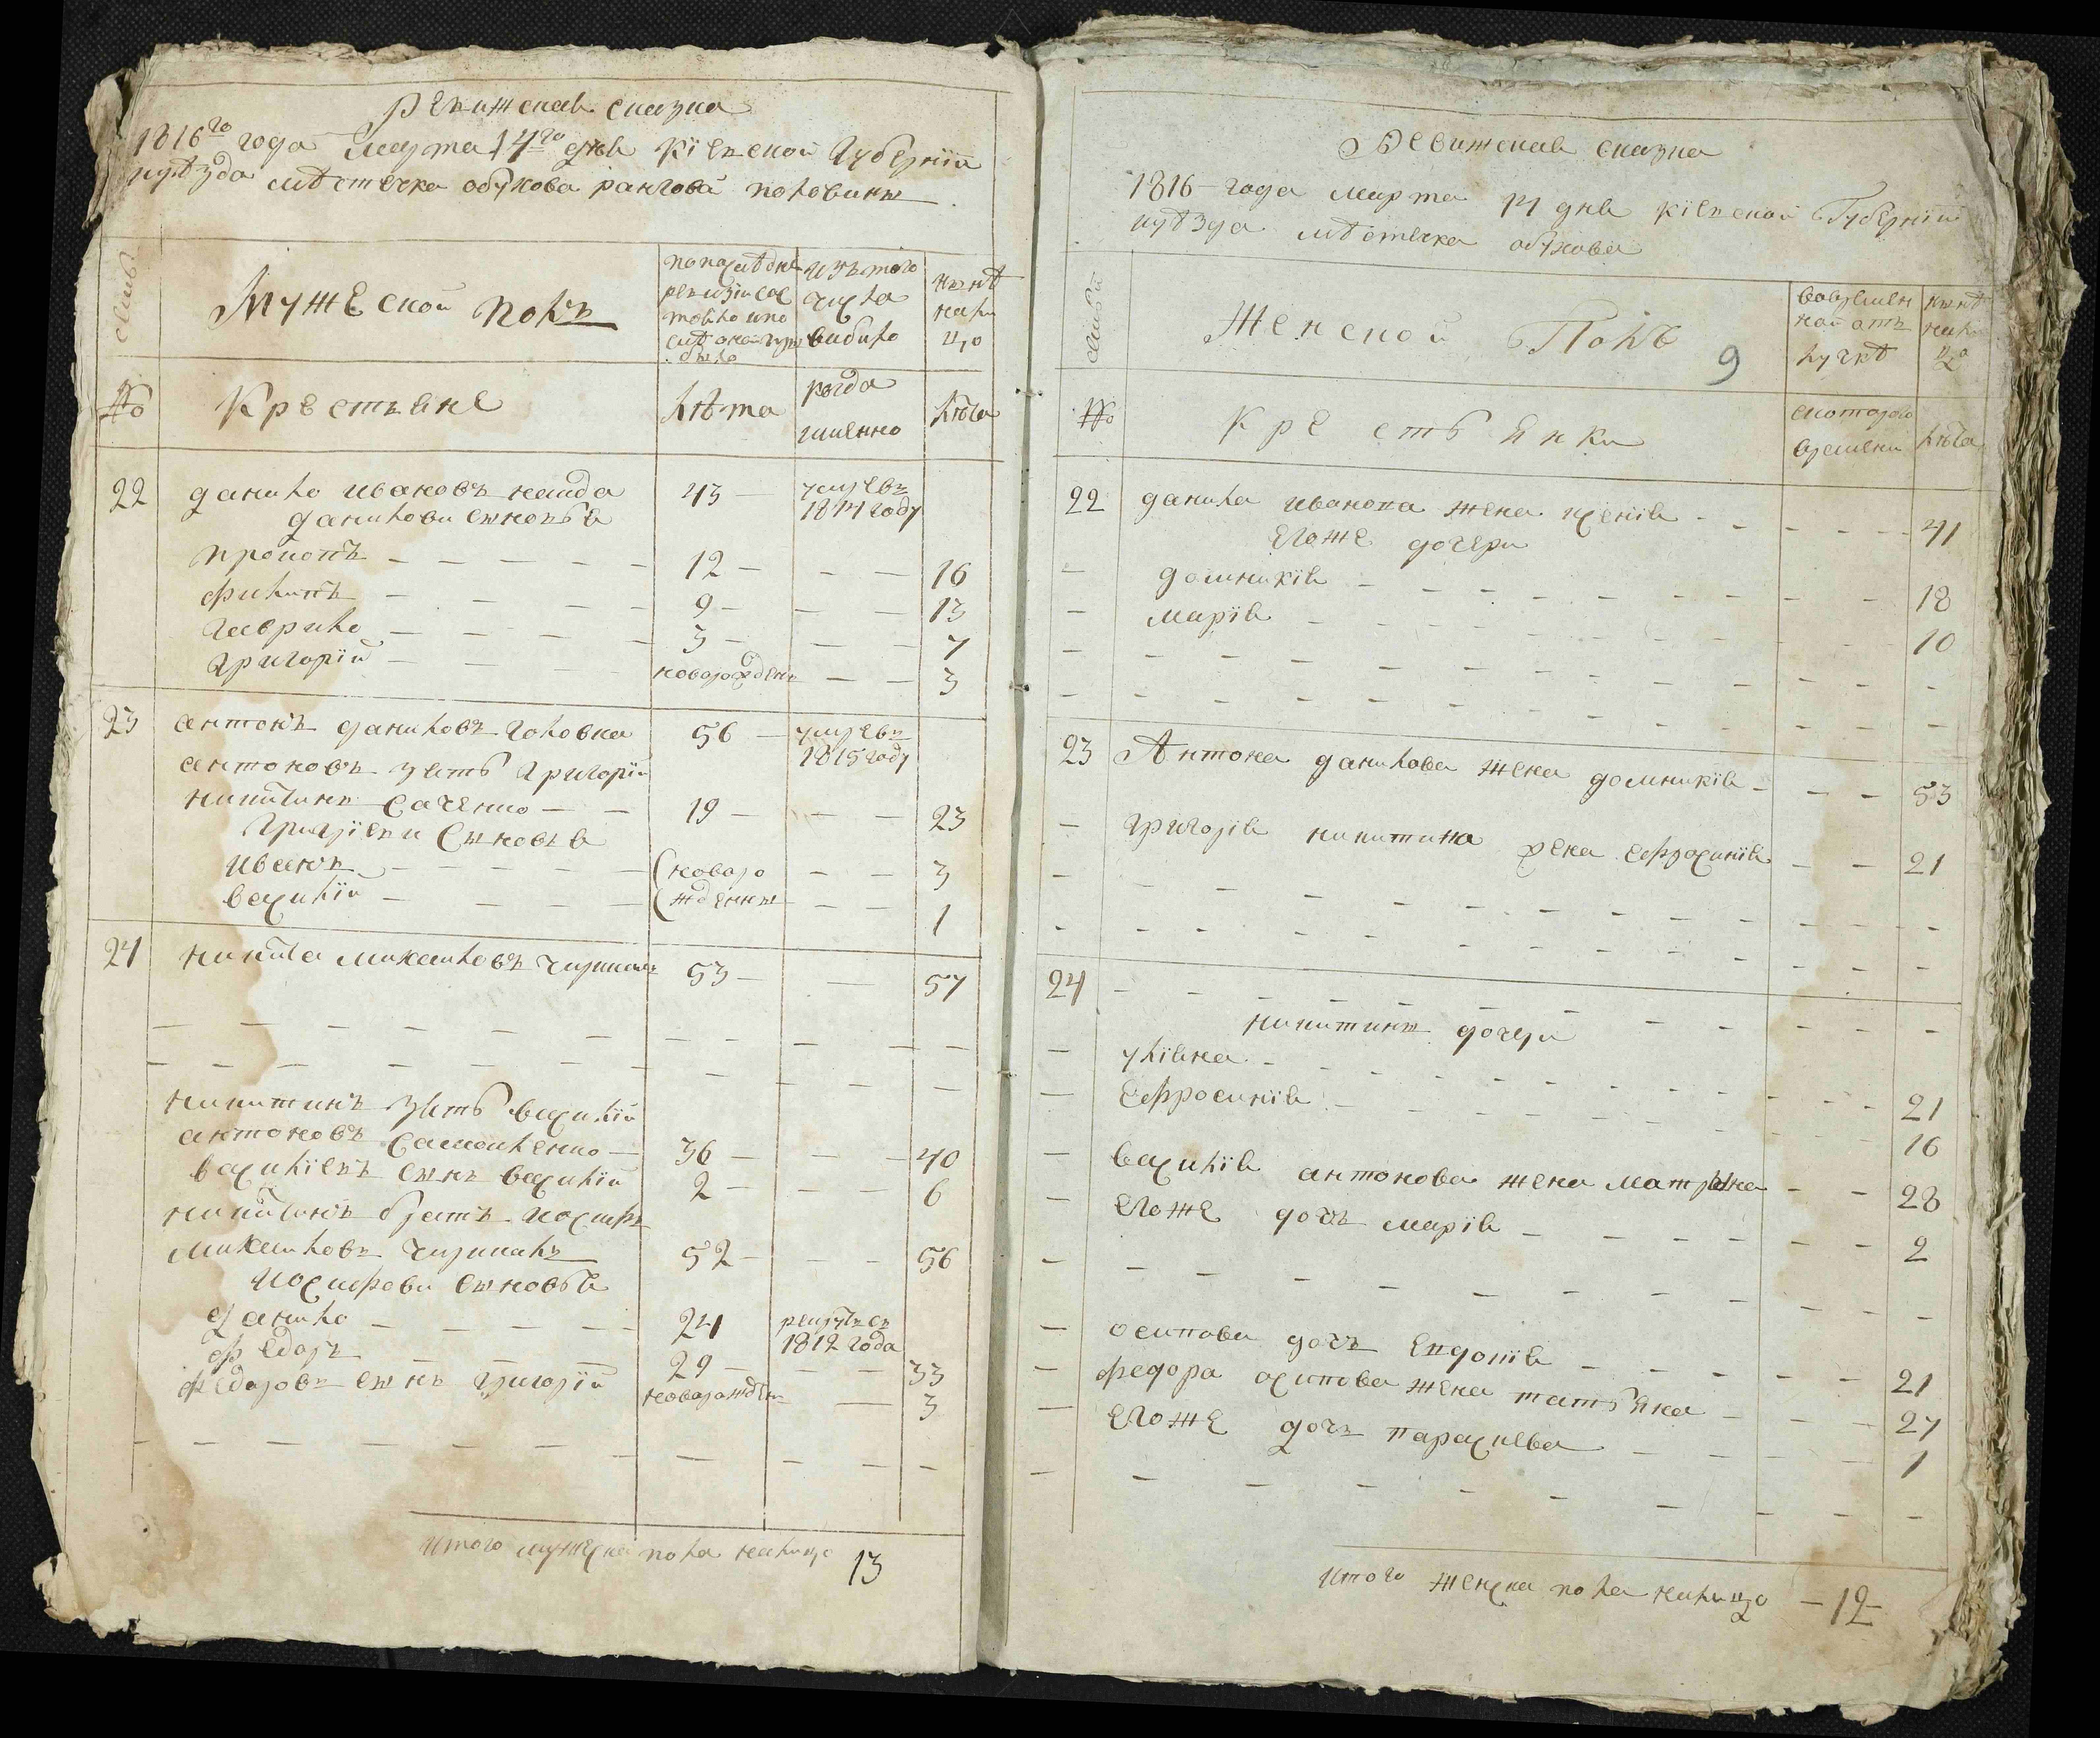 Ревижская сказка
1816го года Марта 14го дня Кіевской Губерніи
и уѣзда мѣстечка обухова ранговой половины
семьи
Мужеской Полъ
по последней ревизіи состояло и по
изъ того числа выбыло
нынѣ на лицо
№
Крестьяне
лѣта
когда именно
лѣта
22 данило Ивановъ 43 умре въ 1814 году
даниловы сыновья
прокопъ 12 16
филипъ 9 13
гаврило 3 7
григорій новорожденъ 3
23 антонъ даниловъ головка 56 умре въ 1815 году
антоновъ зять григорій
никитинъ саченко 19 23
григоріевы сыновья
иванъ новоро 3
василій жденны 1
24 никита михайловъ 53 57
никитинъ зять василій
антоновъ самойленко 36 40
василіевъ сынъ василій 2 6
никитинъ братъ иосифъ
михайловъ 52 56
иосифови сыновья
данило 24 рекрутъ съ 1812 года
федоръ 29 33
федоровъ сынъ григорій новорожденъ 3
итого мужеска пола налицо 13
Ревижская сказка
1816 года марта 14 дня кіевской Губерніи
и уѣзда мѣстечка обухова
семьи
Женской Полъ
9
во временной отлучкѣ
нынѣ на лицо
№
Крестьянки
с котораго времени
лѣта
22 данила иванова жена ксенія 41
егоже дочери
домникія 18
марія 10
23 Антона данилова жена домникія 53
григорія никитина жена ефросинія 21
24
никитины дочери
уліяна 21
Ефросинія 16
василія антонова жена матрына 28
егоже дочъ марія 2
осипова дочъ евдокія 21
федора осипова жена татьяна 27
егоже дочъ параскева 1
итого женска пола налицо 12